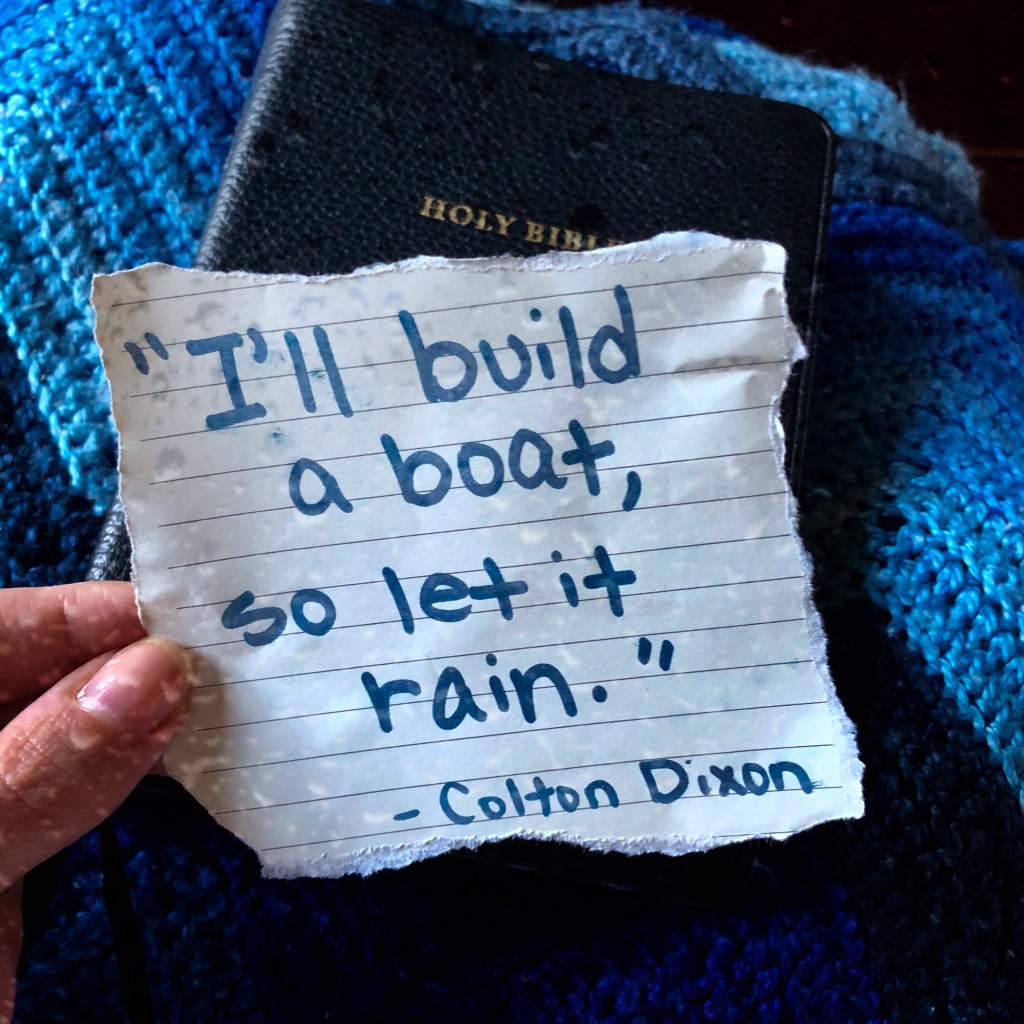 HOLY BIBLE
"I'll build
a boat,
so let it
rain."
- Colton Dixon